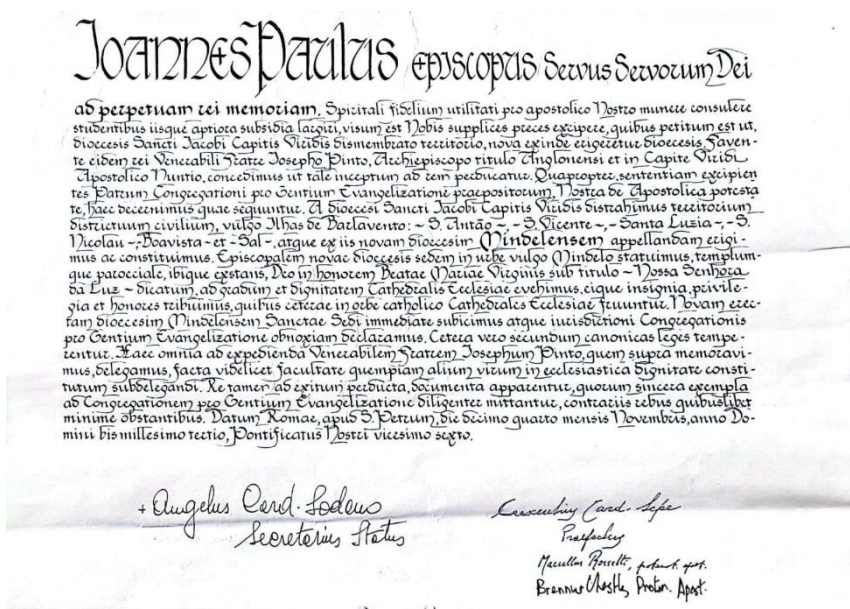 Joannes Paulus Episcopus Servus Servorum Dei
ad perpetuam rei memoriam. Spiritali fidelium utilitati pro apostolico Nostro munere consulere
studentibus iisque aptiora subsidia largiri, visum est Nobis supplices preces excipere, quibus petitum est ut,
dioecesis Sancti Jacobi Capitis Viridis dismembrato territorio, nova exinde erigeretur dioecesis. Faven-
te eidem rei Venerabili Fratre Josepho Pinto, Archiepiscopo titulo Anglonensi et in Capite Viridi
Apostolico Nuntio, concedimus ut tale inceptum ad rem perducatur. Quapropter, sententiam excipien
tes Patrum Congregationi pro Gentium Evangelizatione praepositorum, Nostra de Apostolica potesta
te, haec decernimus quae sequuntur. A dioecesi Sancti Jacobi Capitis Viridis distrahimus territorium
districtuum civilium, vulgo Ilhas de Barlavento: ~ S. Antão ~, - S. Vicente ~, - Santa Luzia ~, - S.
Nicolau -; Boavista - et - Sal -, atque ex iis novam dioecesim Mindelensem appellandam erigi-
mus ac constituimus. Episcopalem novae dioecesis sedem in urbe vulgo Mindelo statuimus, templum-
que paroeciale, ibique exstans, Deo in honorem Beatae Mariae Virginis sub titulo ~ Nossa Senhora
da Luz ~ dicatum, ad gradum et dignitatem Cathedralis Ecclesiae evehimus, eique insignia, privile-
gia et honores tribuimus, quibus ceterae in orbe catholico Cathedrales Ecclesiae fruuntur. Novam erec-
tam dioecesim Mindelensem Sanctae Sedi immediate subicimus atque iurisdictioni Congregationis
pro Gentium Evangelizatione obnoxiam declaramus. Cetera vero secundum canonicas leges tempe-
rentur. Haec omnia ad expedienda Venerabilem Fratrem Josephum Pinto, quem supra memoravi-
mus, delegamus, facta videlicet facultate quempiam alium virum in ecclesiastica dignitate consti-
tutum subdelegandi. Re tamen ad exitum perducta, documenta apparentur, quorum sincera exempla
ad Congregationem pro Gentium Evangelizatione diligenter mittantur, contrariis rebus quibuslibet
minime obstantibus. Datum Romae, apud S. Petrum, die decimo quarto mensis Novembris, anno Do-
mini bis millesimo tertio, Pontificatus Nostri vicesimo sexto.
+ Angelus Card. Sodano
Secretarius Status
Crescentius Card. Sepe
Praefectus
Marcellus Rossetti, protonot. apost.
Proton. Apost.